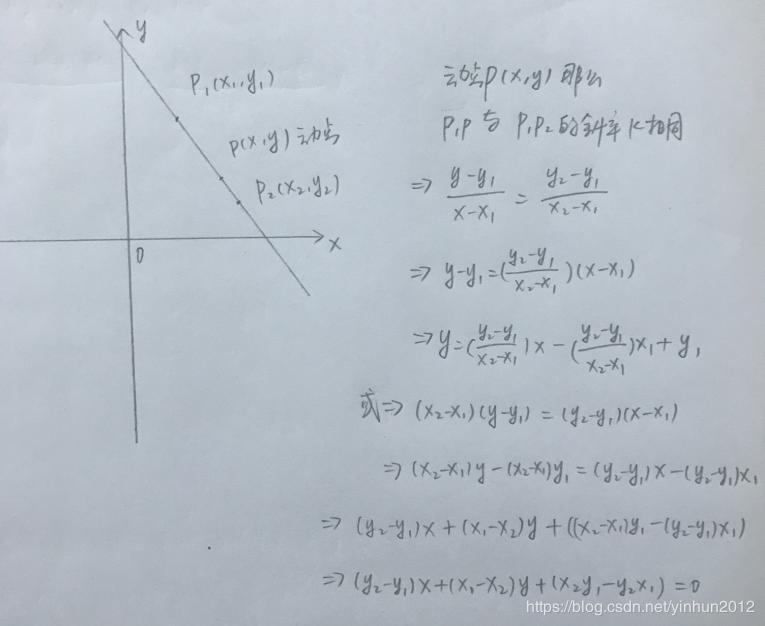 y
P₁(x₁,y₁)
P(x,y)动点
P₂(x₂,y₂)
x
0
动点P(x,y)那么
P₁P与P₁P₂的斜率K相同
⇒ \frac{y-y₁}{x-x₁} = \frac{y₂-y₁}{x₂-x₁}
⇒ y-y₁=(\frac{y₂-y₁}{x₂-x₁})(x-x₁)
⇒ y=(\frac{y₂-y₁}{x₂-x₁})x-(\frac{y₂-y₁}{x₂-x₁})x₁+y₁
或⇒ (x₂-x₁)(y-y₁) = (y₂-y₁)(x-x₁)
⇒ (x₂-x₁)y-(x₂-x₁)y₁=(y₂-y₁)x-(y₂-y₁)x₁
⇒ (y₂-y₁)x+(x₁-x₂)y+((x₂-x₁)y₁-(y₂-y₁)x₁)
⇒ (y₂-y₁)x+(x₁-x₂)y+(x₂y₁-y₂x₁)=0
https://blog.csdn.net/yinhun2012